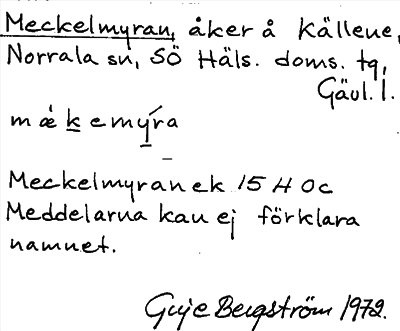 Meckelmyran, åker å Källene,
Norrala sn, SÖ Häls. doms. tg,
Gävl. l.
mǽkemýra
Meckelmyran ek 15 H Oc
Meddelarna kan ej förklara
namnet.
Bergström 1972.